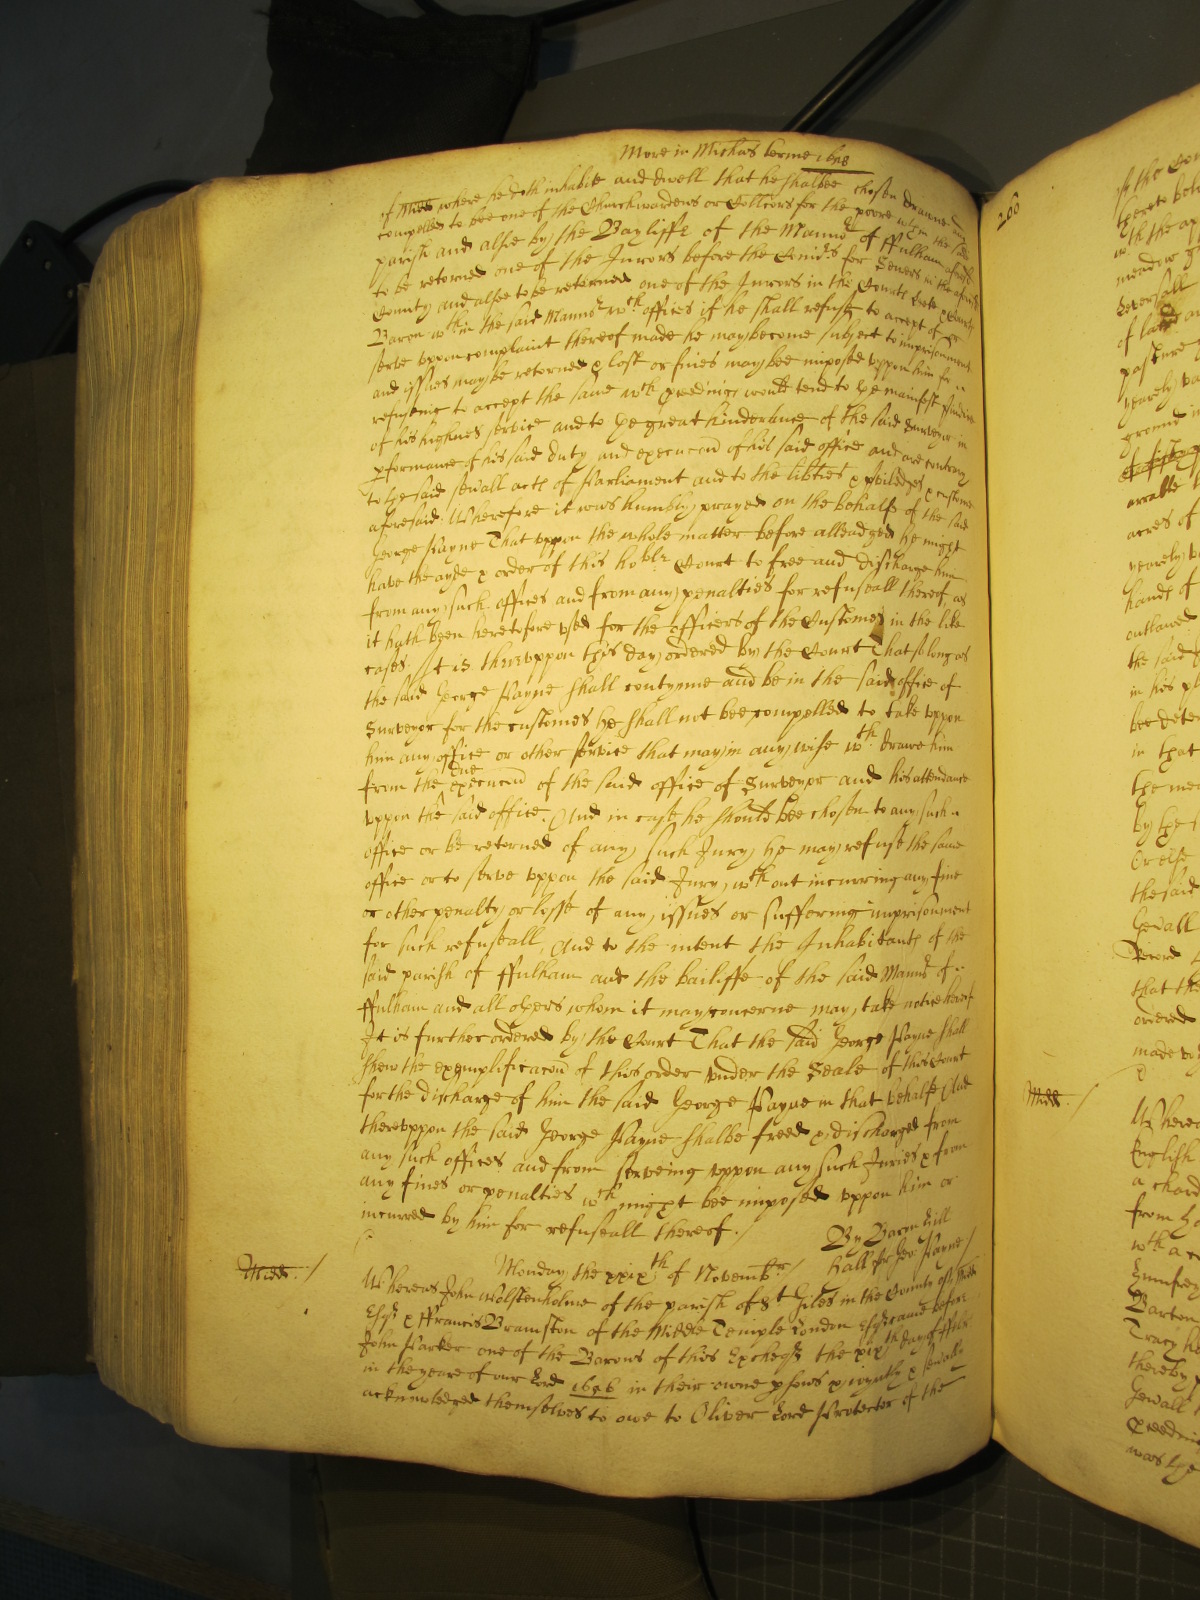 More in Michas terme 1658
of Midd where he doth inhabite and dwell that he shalbee chosen drawne and
compelled to bee one of the Churchwardens or Collcors for the poore wthin the said
parish and alsoe by the Bayliffe of the Mannor of ffulham aforesd
to be returned one of the Jurors before the Comrs for Sewers in the aforesd
County and alsoe to be returned one of the Jurors in the Courts Leete & Courts
Baron wthin the said Mannor wch offices if he shall refuse to accept of or
serve uppon complaint thereof made he may become subject to imprisonment
and issues may be returned & lost or fines may bee imposed uppon him for
refuseing to accept the same wch proedings would tend to the manifest
of his highnes service and to the great hinderance of the said Surveyor in
pformance of his said duty and execucon of his said office and are contrary
to the said sevall acts of Parliament and to the libties & priviledges & customes
aforesaid. Wherefore it was humbly prayed on the behalfe of the said
George Payne That uppon the whole matter before alleadged he might
have the ayde & order of this honble Court to free and discharge him
from any such offices and from any penalties for refuseall thereof, as
it hath been heretofore used for the officers of the Customes in the like
cases. It is thereuppon this day ordered by the Court That so long as
the said George Payne shall contynue and be in the said office of
Surveyor for the customes he shall not bee compelled to take uppon
him any office or other service that may in any wise wth drawe him
from the due execucon of the said office of Surveyor and his attendance
uppon the said office. And in case he should bee chosen to any such
office or be returned of any such Jury he may refuse the same
office or to serve uppon the said Jury, wth out incurring any fine
or other penalty or losse of any issues or suffering imprisonment
for such refuseall, And to the intent the Inhabitants of the
said parish of ffulham and the bailiffe of the said Mannor of
ffulham and all others whom it may concerne may take notice hereof
It is further ordered by the Court That the said George Payne shall
shew the exemplificacon of this order under the Seale of this Court
for the discharge of him the said George Payne in that behalfe And
thereuppon the said George Payne shalbe freed & discharged from
any such offices and from serveing uppon any such Juries & from
any fines or penalties wch might bee imposed uppon him or
incurred by him for refuseall thereof./
By Baron Hill
Hall for Geo: Payne/
Monday the xxixth of Novembr/
Midd./
Whereas John Wolstenholme of the parish of St Giles in the County of Midd
Esqr & ffrancis Bramston of the Middle Temple London Esqr came before
John Parker one of the Barons of this Excheqr the xixth day of ffebr
in the yeare of our Lord 1656 in their owne psons & joyntly & sevally
acknowledged themselves to owe to Oliver Lord Protector of the
260
Midd./
thereto
meadow
of late
pasture
yearely
ground
acres of
yearely
hands of
outlawed
the said
in his
in that
by the
Or else
the said
sevall
Record
that the
ordered
made
Wherea
English
from
wth a
Humfrey
Barton
Tracy
thereby
sevall
was the